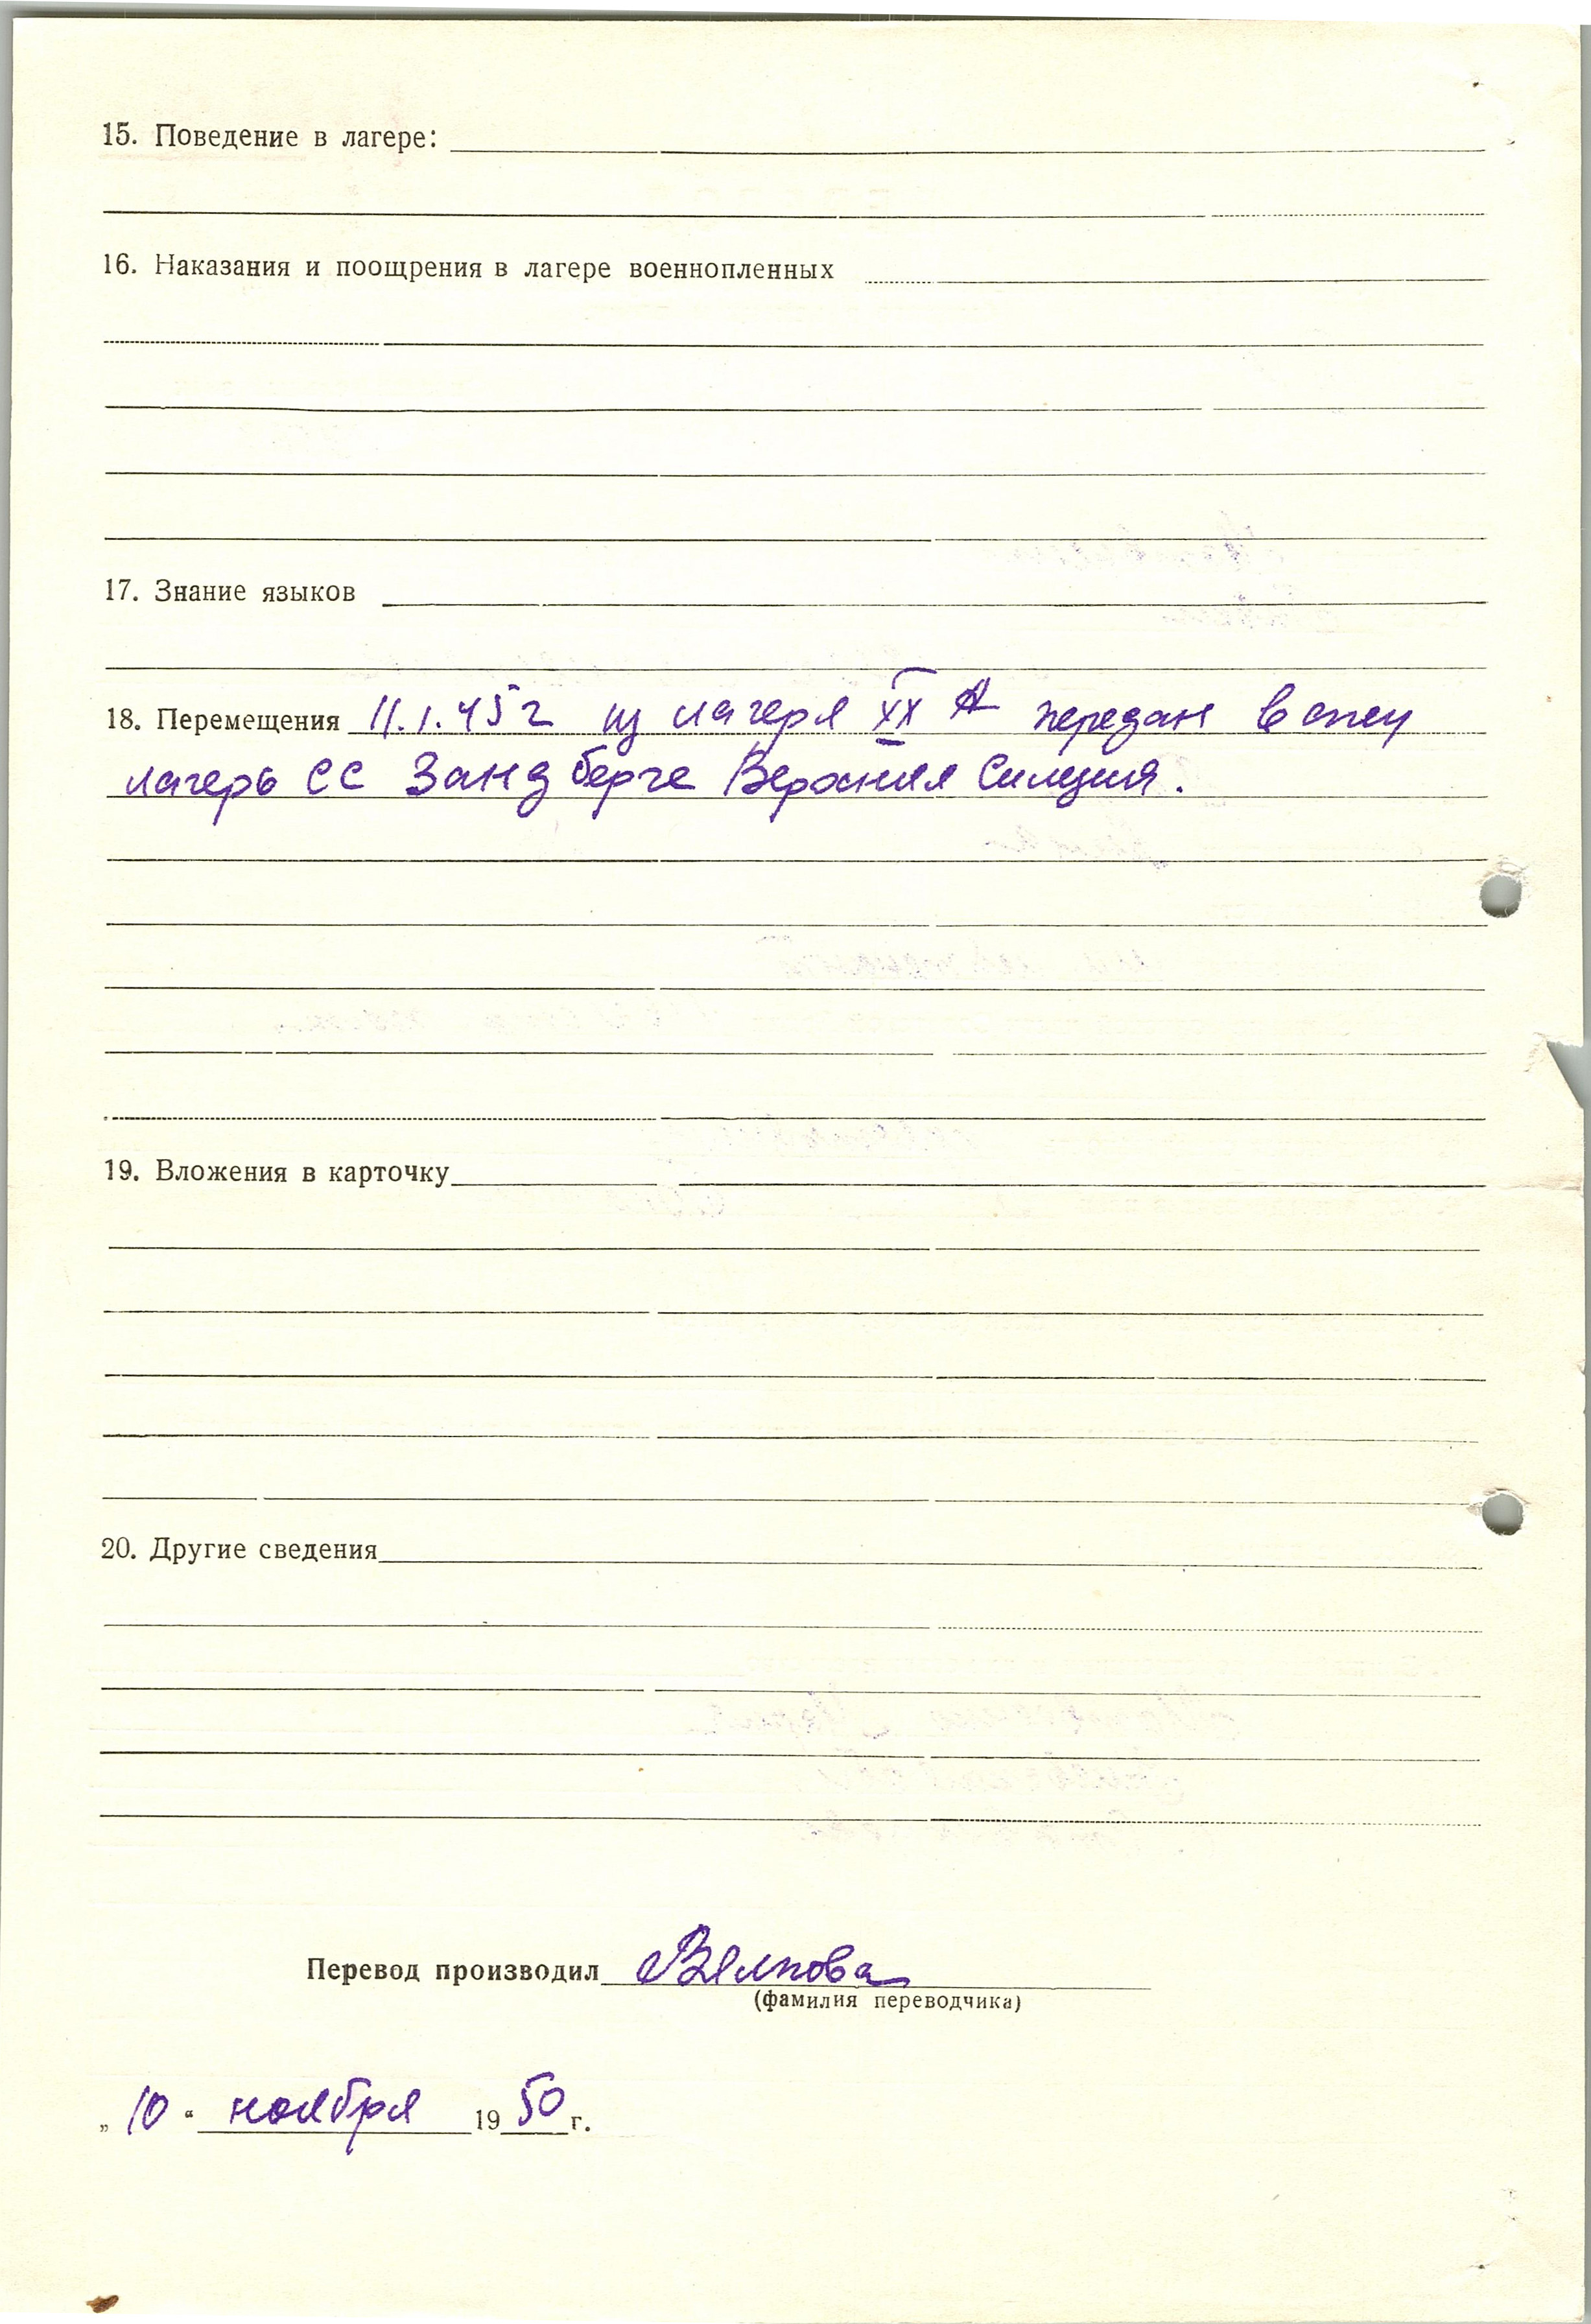 15. Поведение в лагере:
16. Наказания и поощрения в лагере военнопленных
17. Знание языков
18. Перемещения 11.1.45 г из лагеря XX А передан в спец
лагерь СС Зандберге Верхняя Силезия.
19. Вложения в карточку
20. Другие сведения
Перевод производил
(фамилия переводчика)
„ 10 “ ноября 19 50 г.